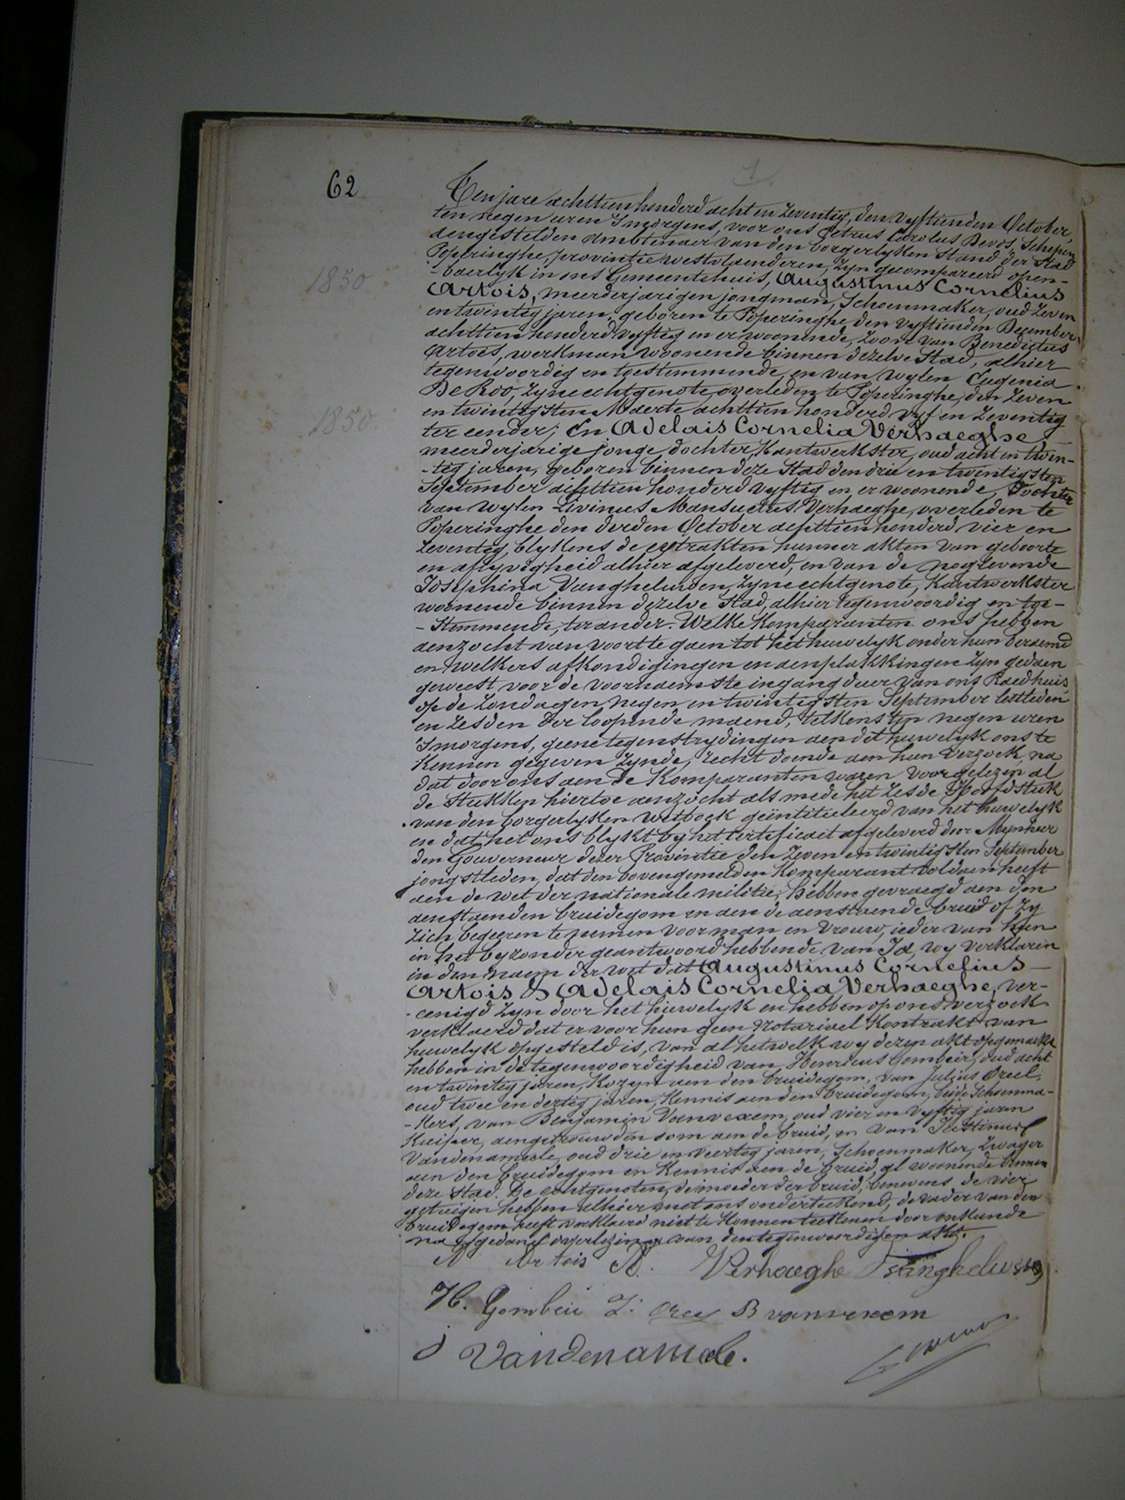 62
1
Ten jare achttien honderd acht en zeventig, den vyftienden October,
ten negen uren 's morgens, voor ons Petrus Carolus Devos, Schepen,
aengestelden ambtenaer van den borgerlyken stand der Stad
Poperinghe, provintie westvlaenderen, zyn gecompareerd open-
1850
-baerlyk in ons Gemeentehuis, Augustinus Cornelius
Artois, meerderjarigen jongman, Schoenmaker, oud zeven
en twintig jaren, geboren te Poperinghe den vyftienden December
achttien honderd vyftig en er woonende, zoon van Benedictus
Artois, werkman woonende binnen dezelve Stad, alhier
tegenwoordig en toestemmende, en van wylen Eugenia
De Roo, zyne echtgenote, overleden te Poperinghe, den zeven
en twintigsten Maerte achttien honderd vyf en zeventig
1850
ter eender; En Adelais Cornelia Verhaeghe
meerderjarige jonge dochter, Kantwerkster, oud acht en twin-
-tig jaren, geboren binnen deze Stad den drie en twintigsten
September achttien honderd vyftig en er woonende, Dochter
van wylen Livinus Mansuetus Verhaeghe, overleden te
Poperinghe den derden October achttien honderd vier en
zeventig, blykens de extrakten hunner akten van geboorte
en aflyvigheid alhier afgeleverd, en van de nog levende
Josephina Vangheluwen, zyne echtgenote, Kantwerkster
woonende binnen dezelve Stad, alhier tegenwoordig en toe-
-stemmende, ter ander. Welke Komparanten ons hebben
aenzocht van voort te gaen tot het huwelyk onder hun beraemd
en welkers afkondigingen en aenplakkingen zyn gedaen
geweest voor de voornaemste ingangdeur van ons Raedhuis
op de Zondagen negen en twintigsten September lestleden
en zesden der loopende maend, telkens ten negen uren
's morgens, geene tegenstrydingen aen dit huwelyk ons te
kennen gegeven zynde, recht doende aen hun verzoek, na
dat door ons aen de Komparanten waren voorgelezen al
de stukken hiertoe aenzocht als mede het zesde Hoofdstuk
van den borgerlyken Wetboek geïntituleerd van het huwelyk
en dat het ons blykt by het certificaet afgeleverd door Mynheer
den Gouverneur dezer Provintie den zeven en twintigsten September
jongstleden, dat den bovengemelden Komparant voldaen heeft
aen de wet der nationale militie, hebben gevraegd aen den
aenstaenden bruidegom en aen de aenstaende bruid of zy
zich begeeren te nemen voor man en vrouw, ieder van hun
in het byzonder geantwoord hebbende van Ja, wy verklaren
in den naem der wet dat Augustinus Cornelius
Artois & Adelais Cornelia Verhaeghe, ver-
-eenigd zyn door het huwelyk en hebben op ons verzoek
verklaerd dat er voor hun geen notarieel Kontrakt van
huwelyk opgesteld is, van al hetwelk wy dezen akt opgemaekt
hebben in de tegenwoordigheid van Henricus Gombeir, oud acht
en twintig jaren, Kozyn aen den bruidegom, van Julius Oreel,
oud twee en dertig jaren, Kennis aen den bruidegom, beide Schoenma-
-kers, van Benjamin Vanvexem, oud vier en vyftig jaren
Kuiper, aengetrouwden oom aen de bruid, en van
Vandenameele, oud drie en veertig jaren, Schoenmaker, Zwager
aen den bruidegom en Kennis aen de bruid, al woonende binnen
deze Stad. De echtgenoten, de moeder der bruid, benevens de vier
getuigen hebben alhier met ons onderteekend, de vader van den
bruidegom heeft verklaerd niet te Konnen teekenen door onkunde
na gedane overlezing van den tegenwoordigen akt.
A Artois A. Verhaeghe
H. Gombeir J. Oreel B vanvexem
j Vandenameele.